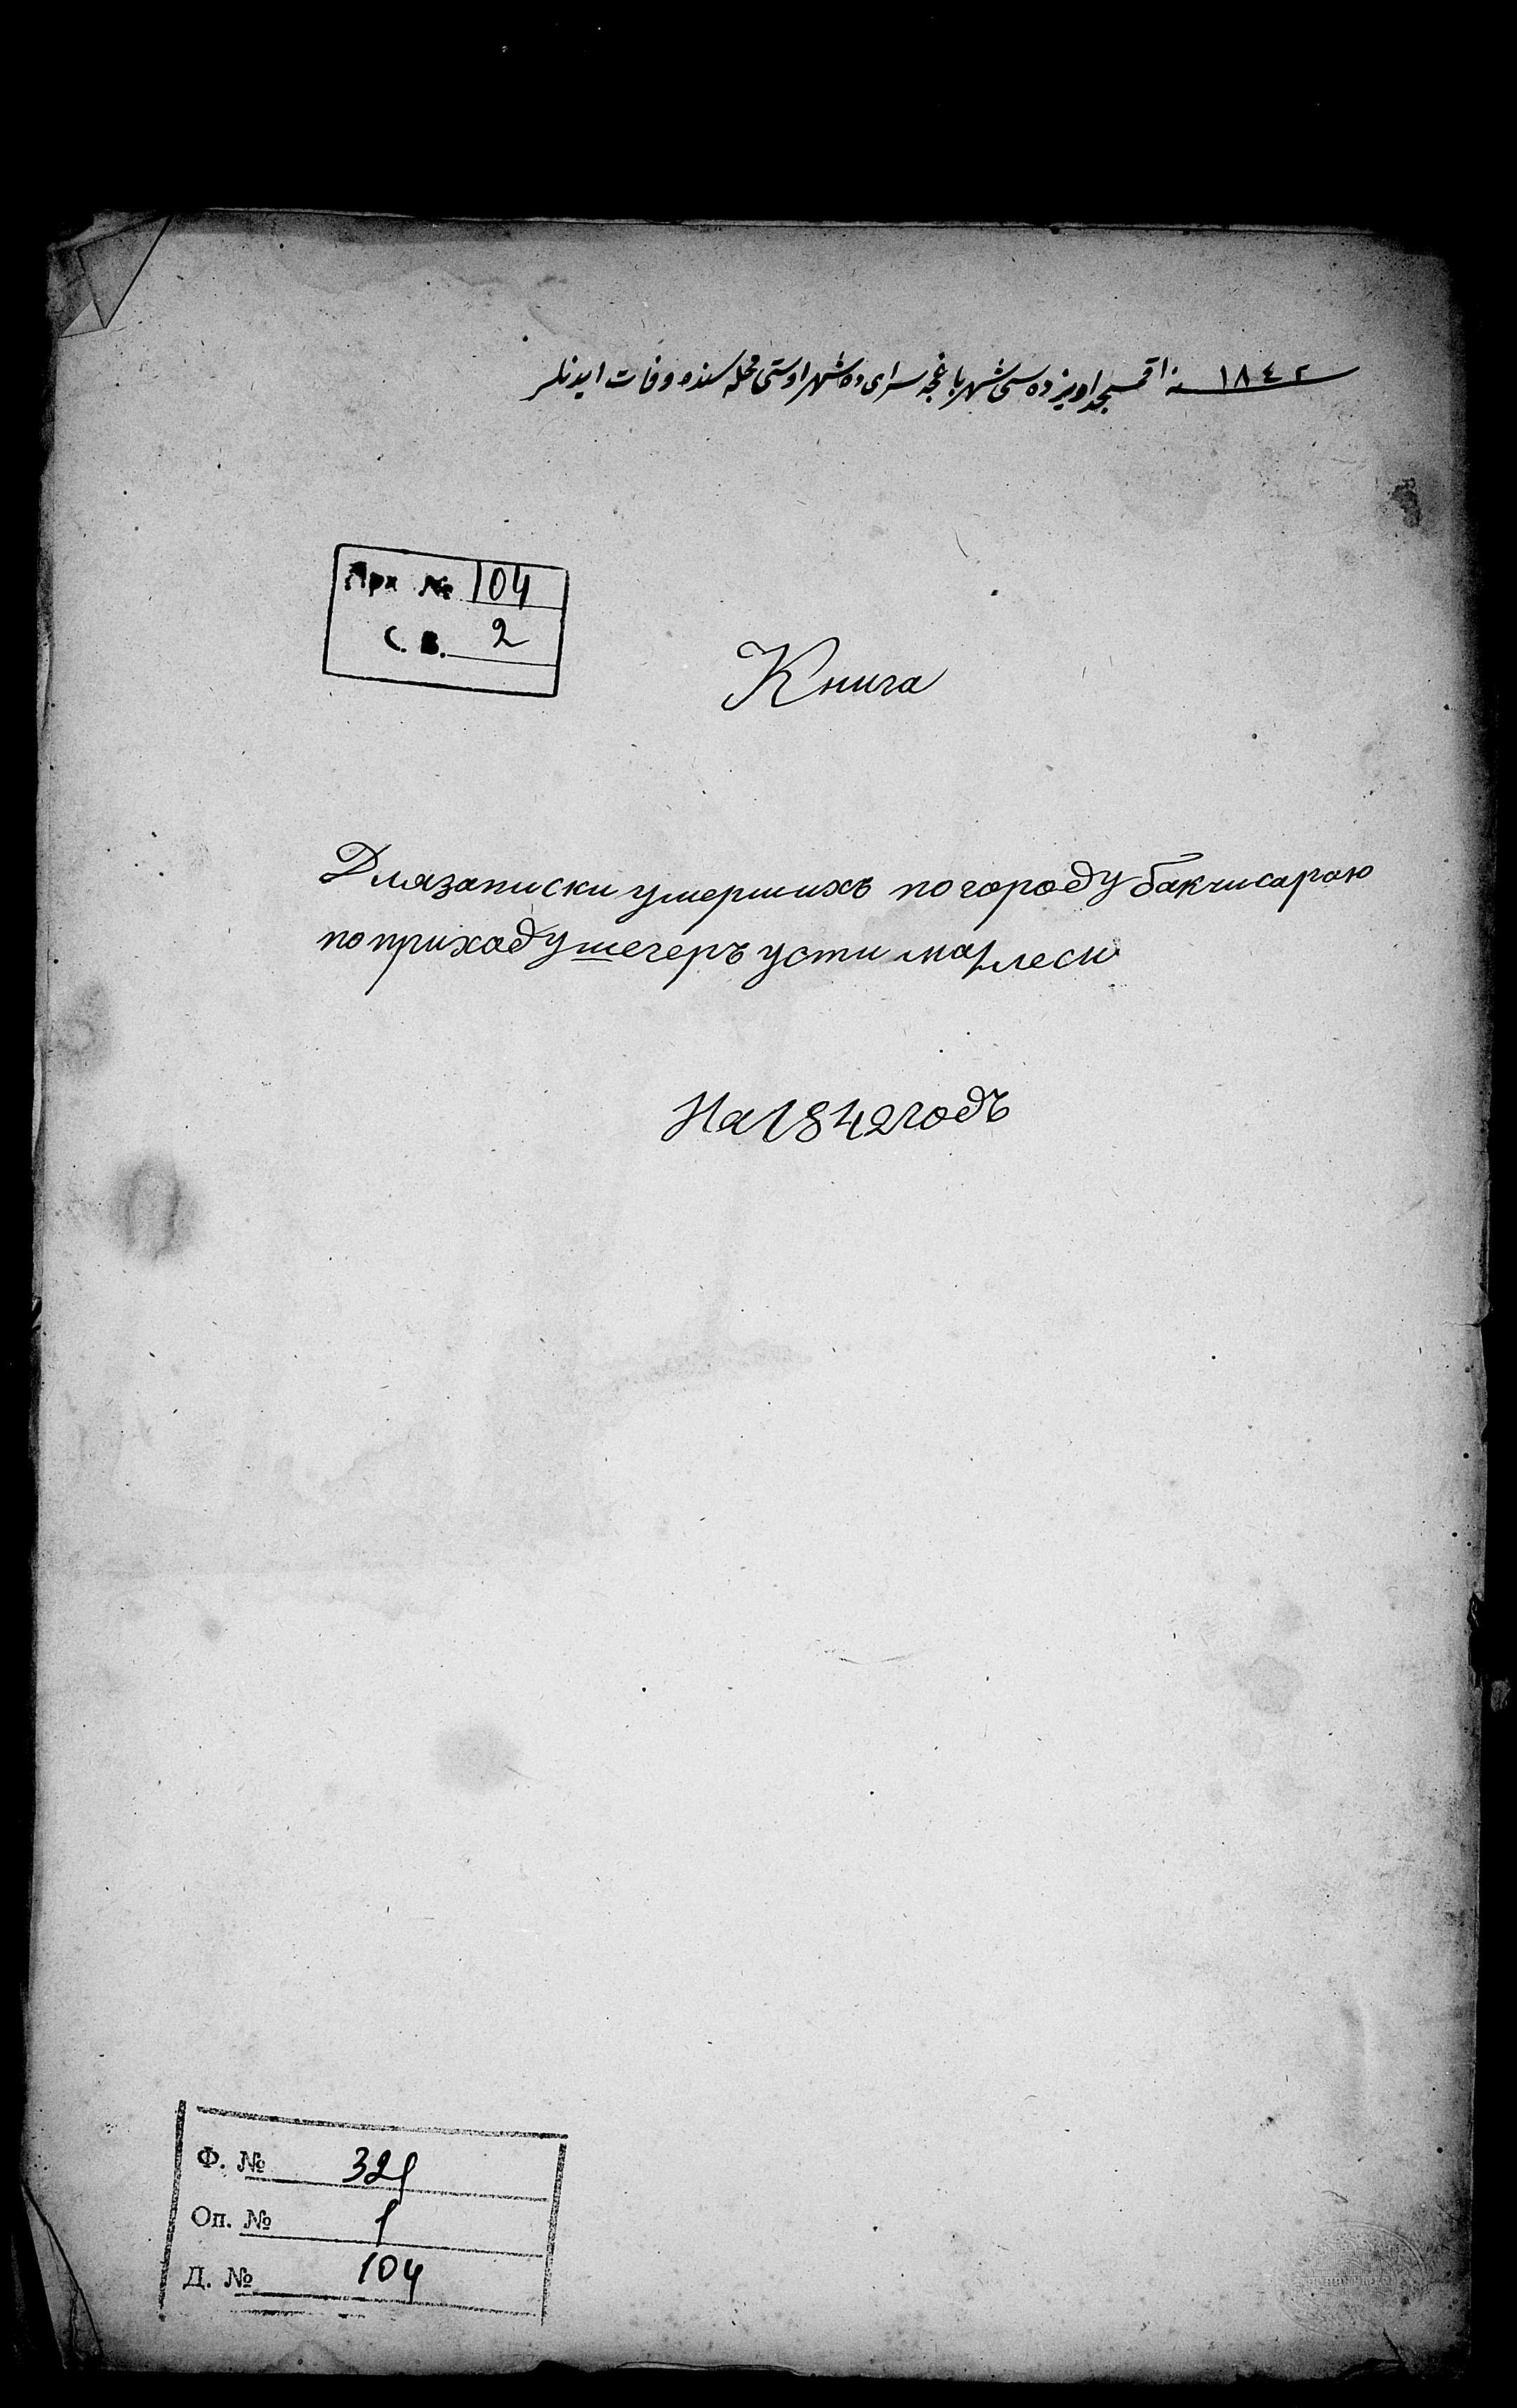 ١٨٤٢ سنه اقمسجد اويزده سى شهر باغچه سراى ده شهر اوستى محله سنده وفات ايدنلر
Арх № 104
С. В. 2
Книга
Для записки умершихъ по городу бакчисараю
по приходу шегеръ усти махлеси
На 1842 годъ
Ф. № 321
Оп. № 1
Д. № 104